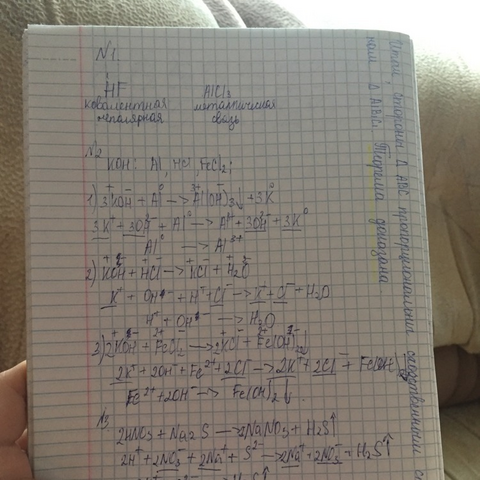 N1.
HF AlCl3
ковалентная металлическая
неполярная связь
N2
KOH: Al, HCl, FeCl2;
1) 3KOH + Al → Al(OH)3↓ + 3K
3K⁺ + 3OH⁻ + Al⁰ → Al³⁺ + 3OH⁻ + 3K⁰
Al⁰ → Al³⁺
2) KOH + HCl → KCl + H2O
K⁺ + OH⁻ + H⁺ + Cl⁻ → K⁺ + Cl⁻ + H2O
H⁺ + OH⁻ → H2O
3) 2KOH + FeCl2 → 2KCl + Fe(OH)2↓
2K⁺ + 2OH⁻ + Fe²⁺ + 2Cl⁻ → 2K⁺ + 2Cl⁻ + Fe(OH)2↓
Fe²⁺ + 2OH⁻ → Fe(OH)2↓.
N3
2HNO3 + Na2S → 2NaNO3 + H2S↑
2H⁺ + 2NO3⁻ + 2Na⁺ + S²⁻ → 2Na⁺ + 2NO3⁻ + H2S↑
Итак, стороны Δ ABC пропорциональны сходственным
нам Δ A1B1C1 Теорема доказана.